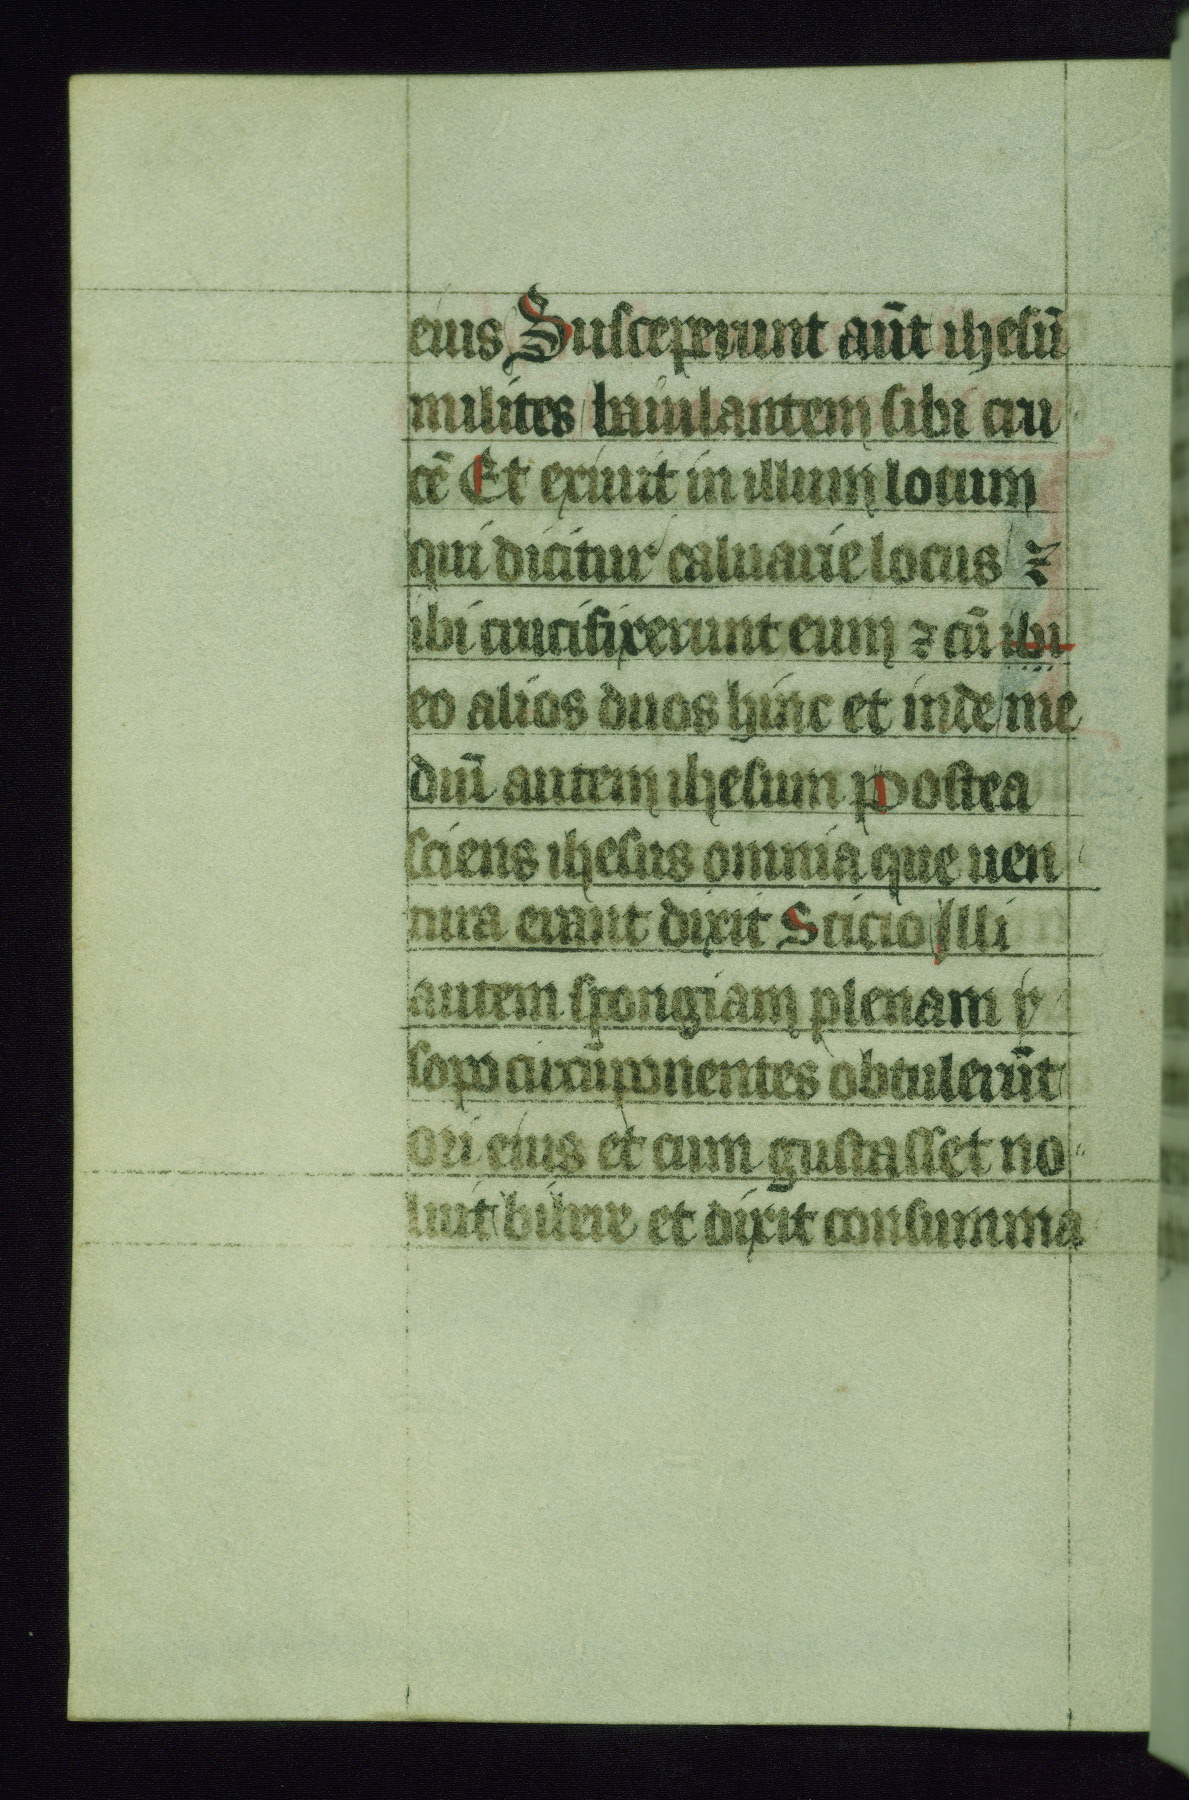 eius Susceperunt aūt ihesū
milites baiulantem sibi cru
cē Et exiuit in illum locum
qui dicitur caluarie locus ⁊
ibi crucifixerunt eum ⁊ cū ibi
eo alios duos hinc et inde me
diū autem ihesum postea
sciens ihesus omnia que uen
tura erant dixit Scicio Illi
autem spongiam plenam y
sopo circūponentes obtulerūt
ori eius et cum gustasset no
luit bibere et dixit consumma